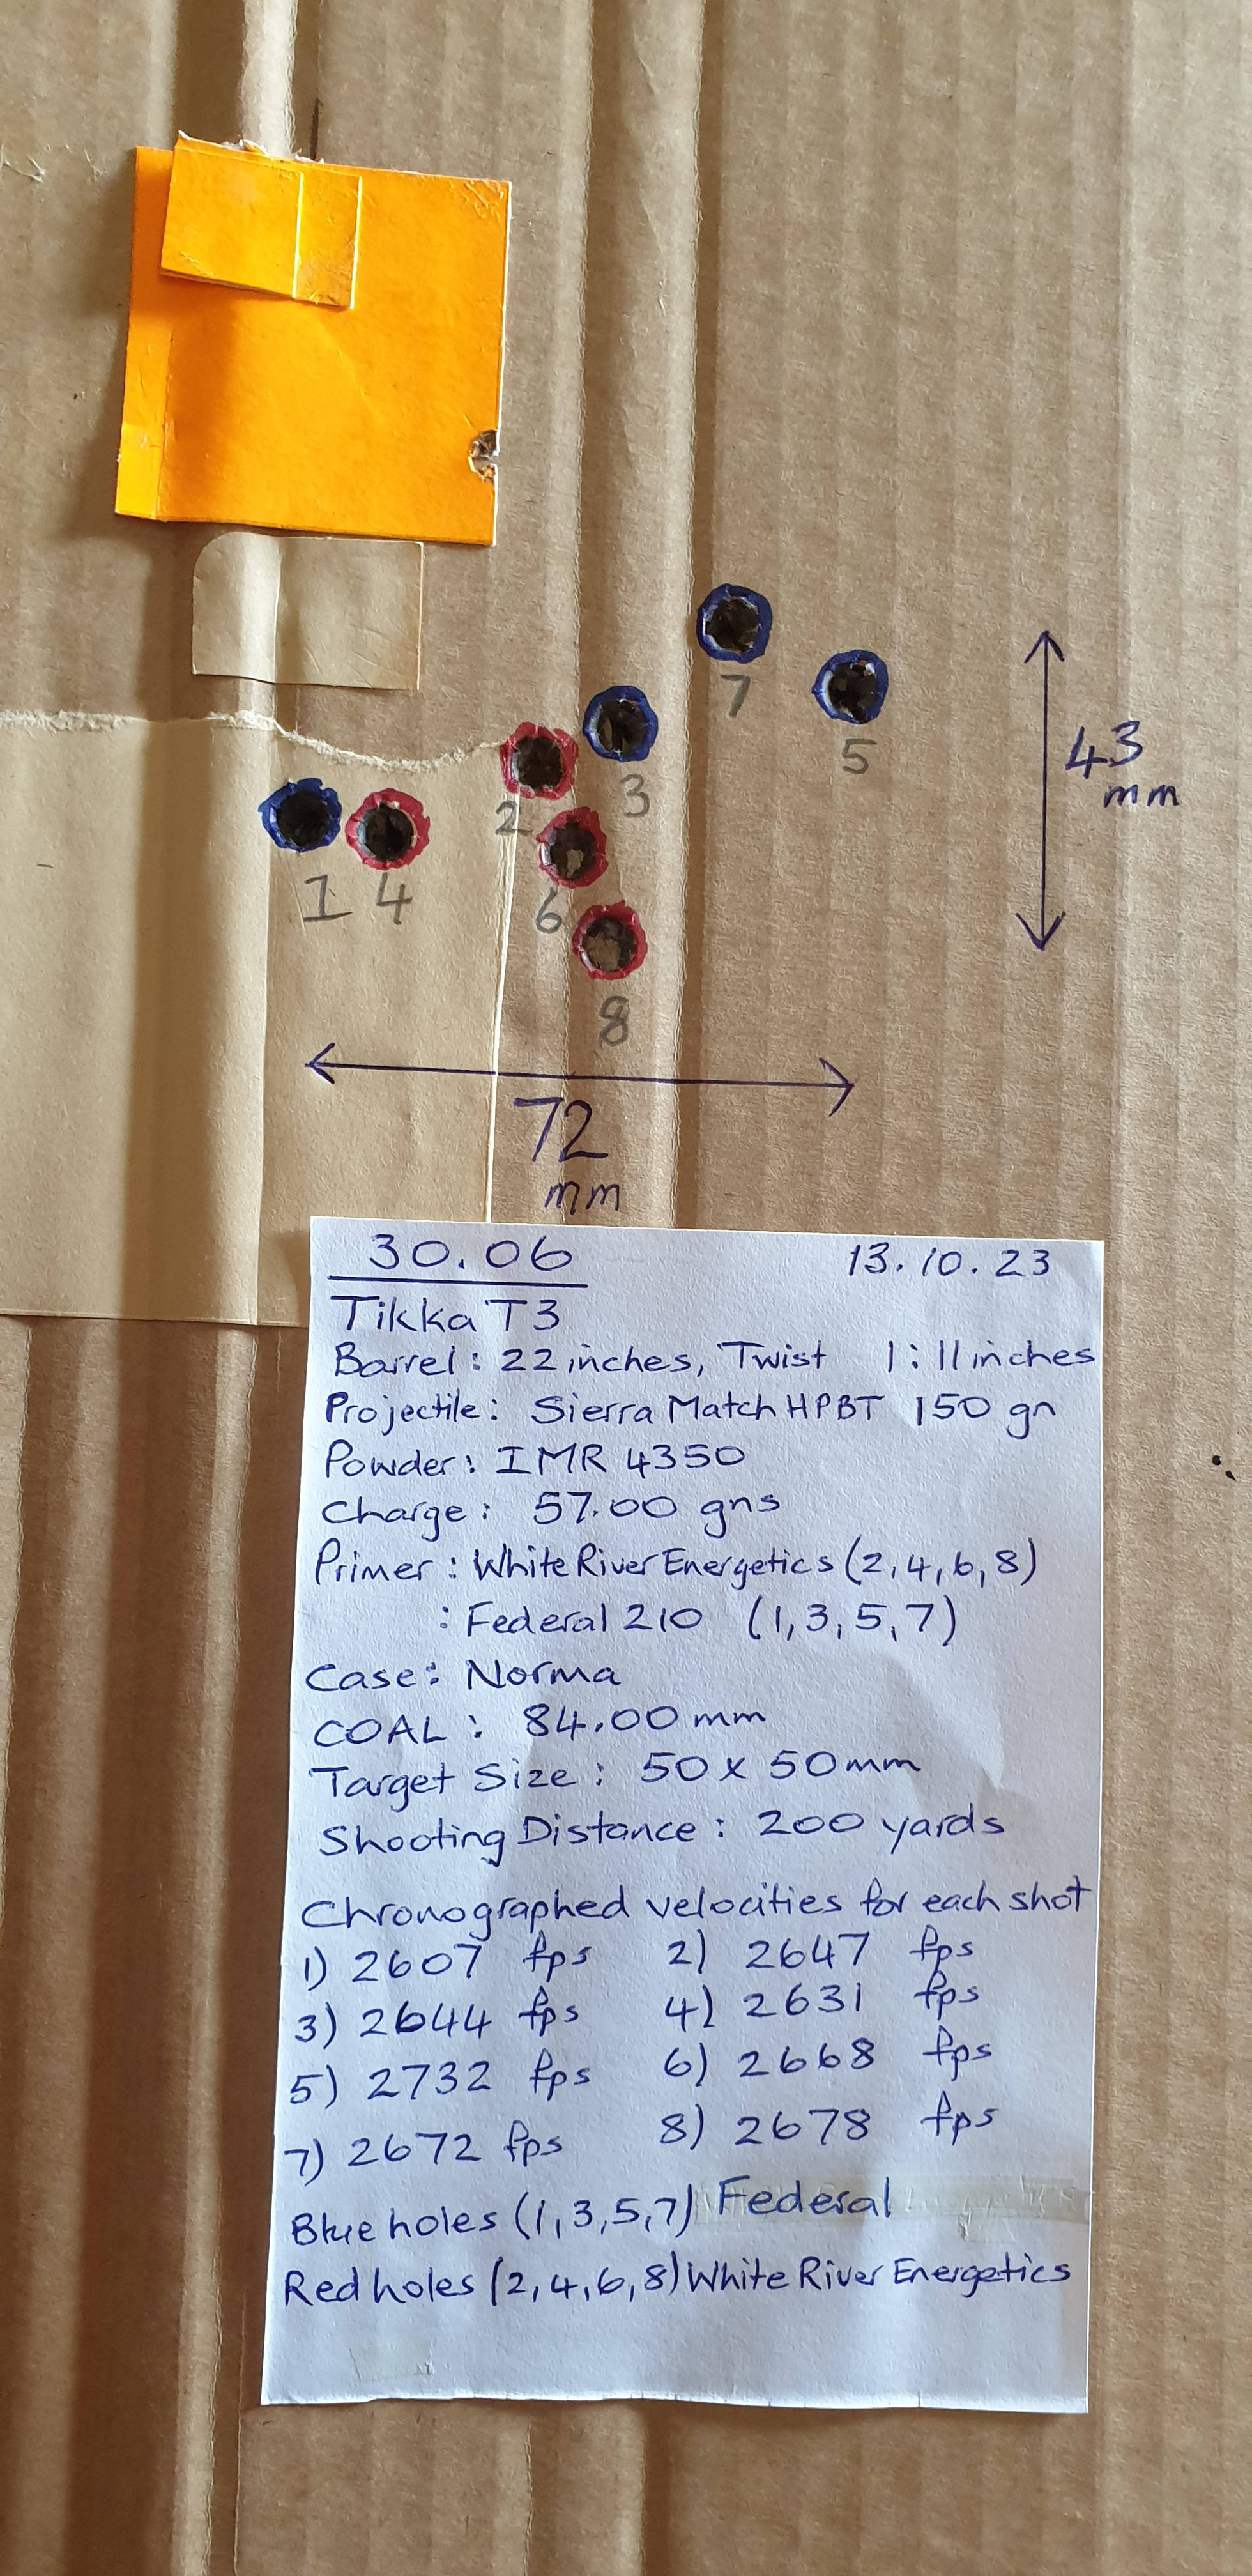 7
5
3
2
43
mm
1 4
6
8
72
mm
30.06 13.10.23
Tikka T3
Barrel: 22 inches, Twist 1:11 inches
Projectile: Sierra Match HPBT 150 gn
Powder: IMR 4350
Charge: 57.00 gns
Primer: White River Energetics (2,4,6,8)
: Federal 210 (1,3,5,7)
Case: Norma
COAL: 84.00 mm
Target Size: 50 x 50mm
Shooting Distance: 200 yards
Chronographed velocities for each shot
1) 2607 fps 2) 2647 fps
3) 2644 fps 4) 2631 fps
5) 2732 fps 6) 2668 fps
7) 2672 fps 8) 2678 fps
Blue holes (1,3,5,7) Federal
Red holes (2,4,6,8) White River Energetics